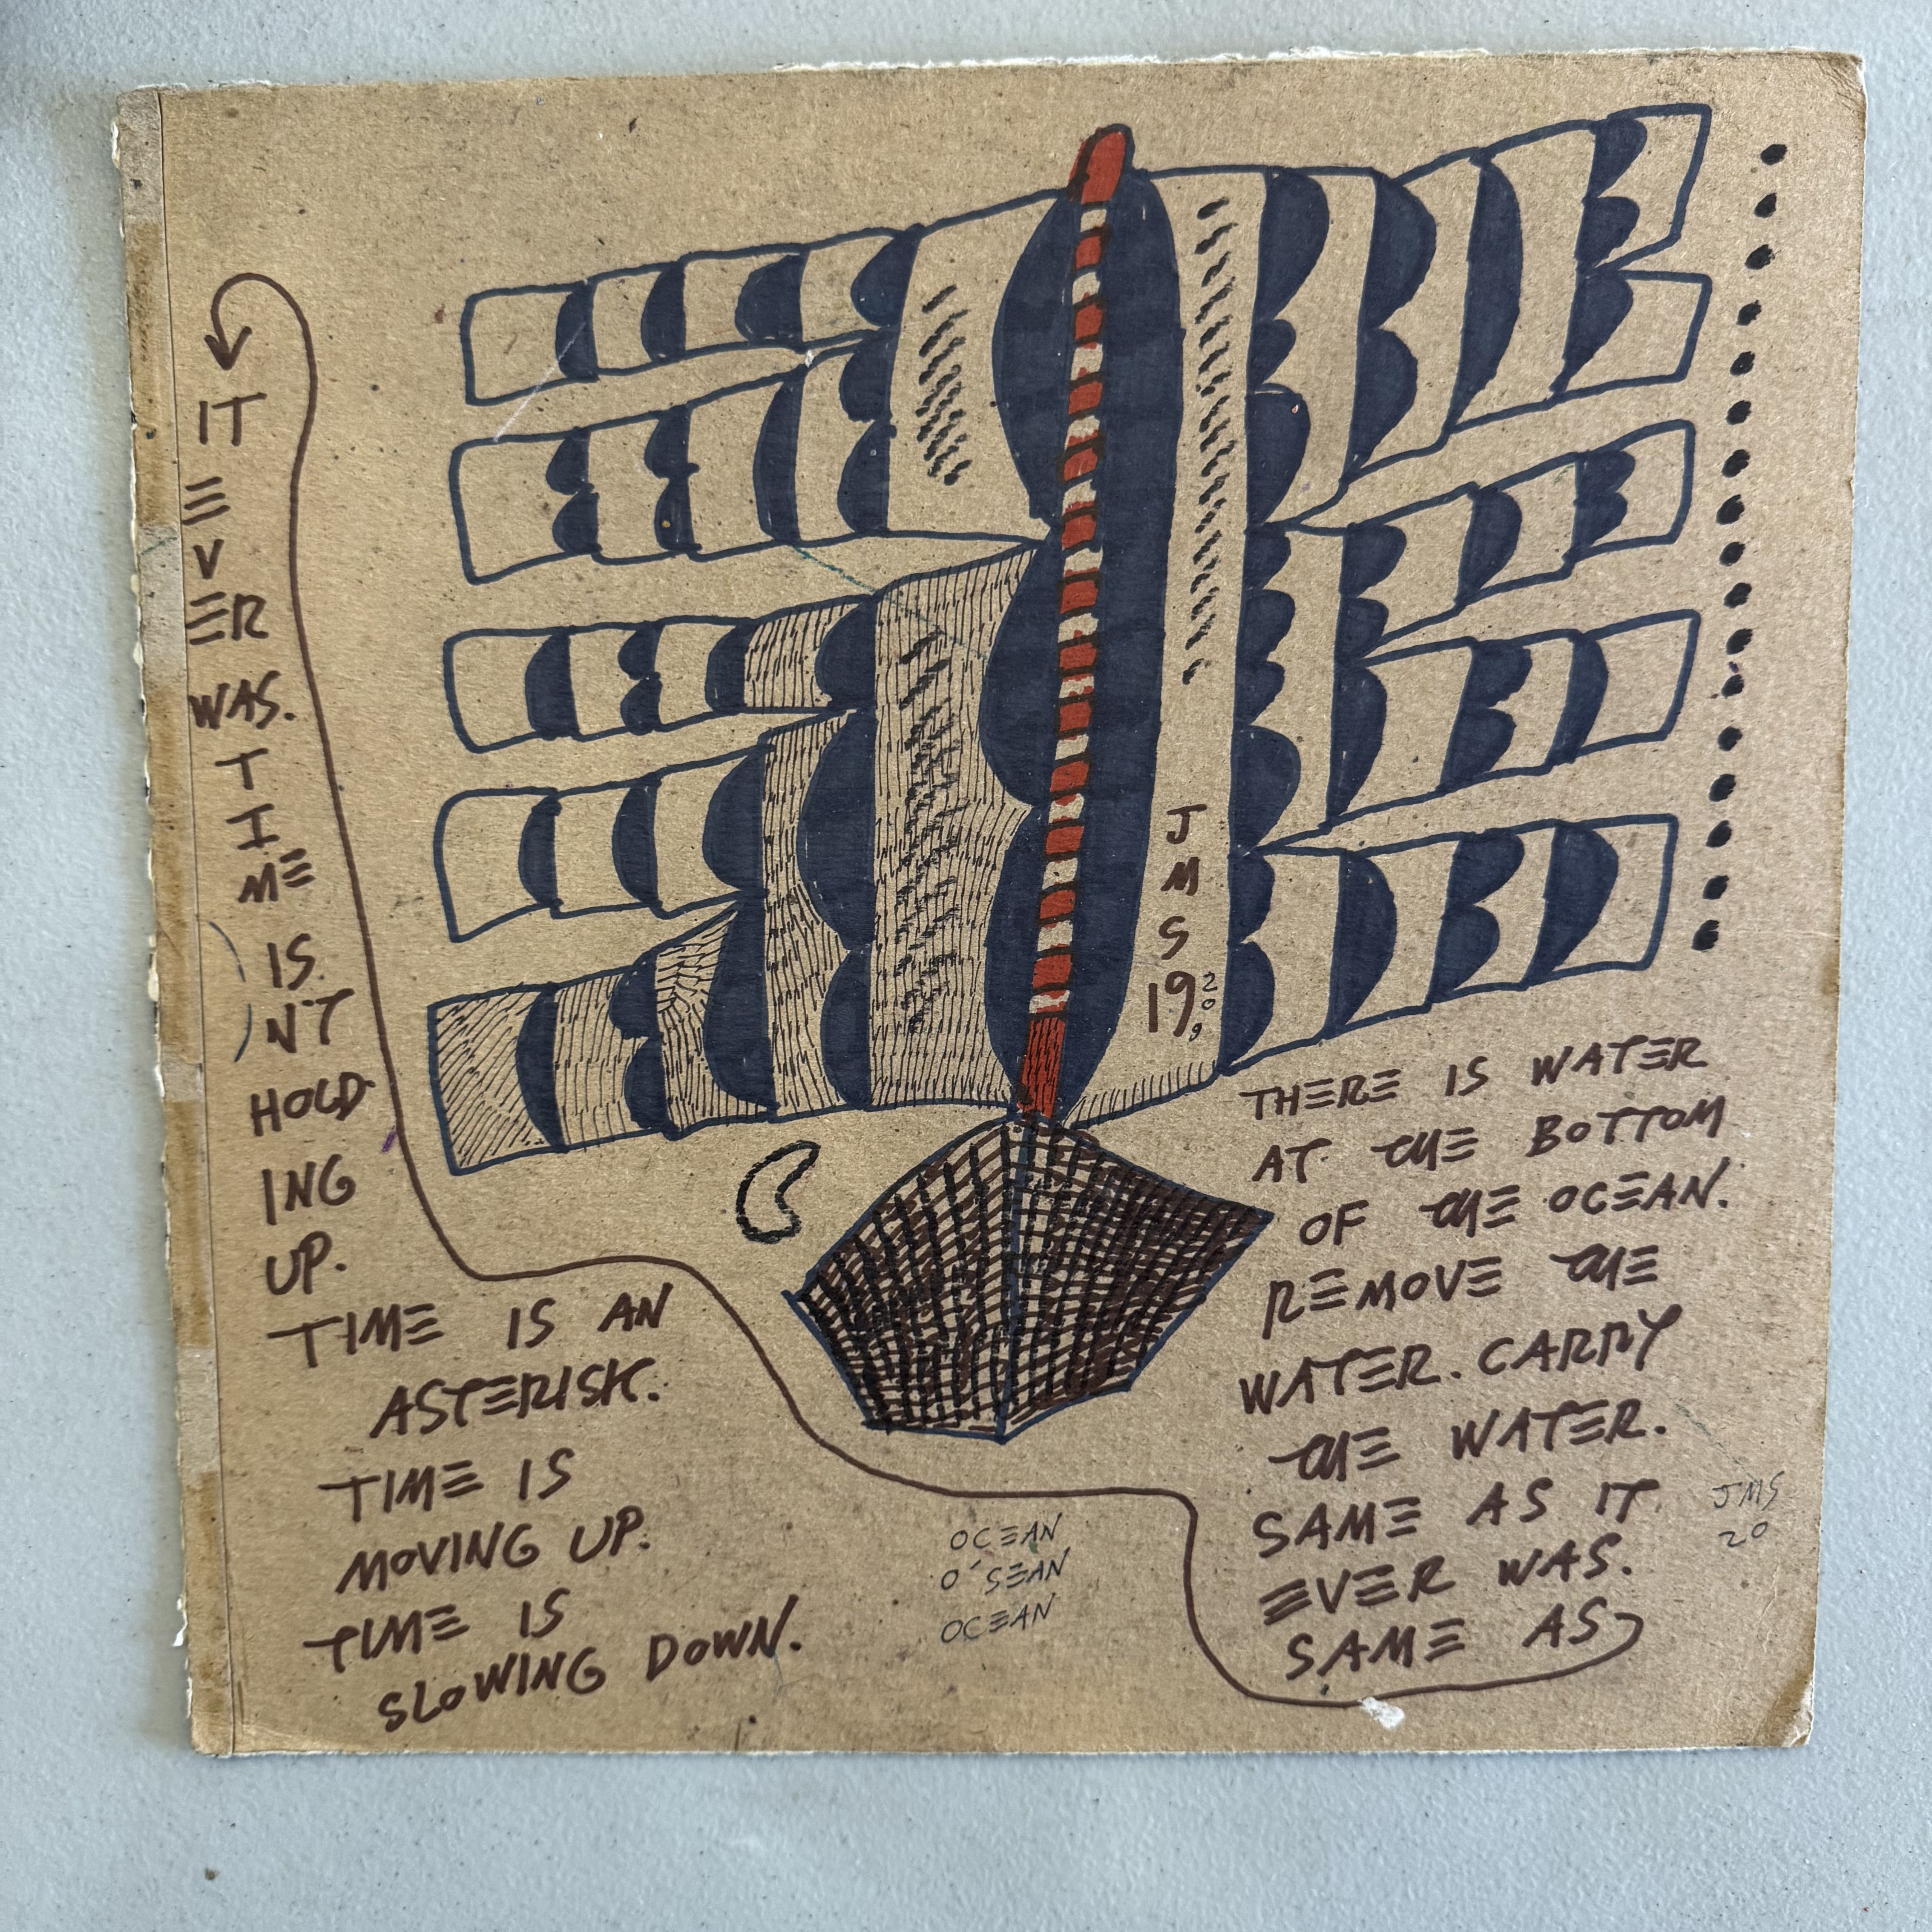 THERE IS WATER
AT THE BOTTOM
OF THE OCEAN.
REMOVE THE
WATER. CARRY
THE WATER.
SAME AS IT
EVER WAS.
SAME AS
IT
E
V
ER
WAS.
T
I
ME
IS
N'T
HOLD
ING
UP.
TIME IS AN
ASTERISK.
TIME IS
MOVING UP.
TIME IS
SLOWING DOWN.
OCEAN
O'SEAN
OCEAN
J
M
S
19
20
JMS
20